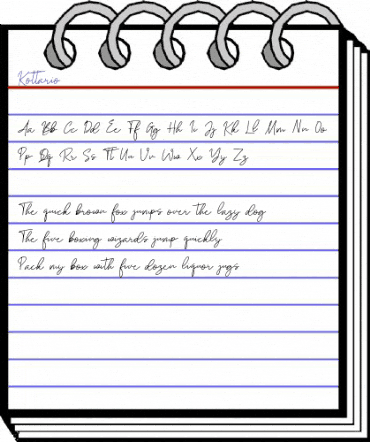 Kottario
Aa Bb Cc Dd Ee Ff Gg Hh Ii Jj Kk Ll Mm Nn Oo
Pp Qq Rr Ss Tt Uu Vv Ww Xx Yy Zz
The quick brown fox jumps over the lazy dog
The five boxing wizards jump quickly
Pack my box with five dozen liquor jugs